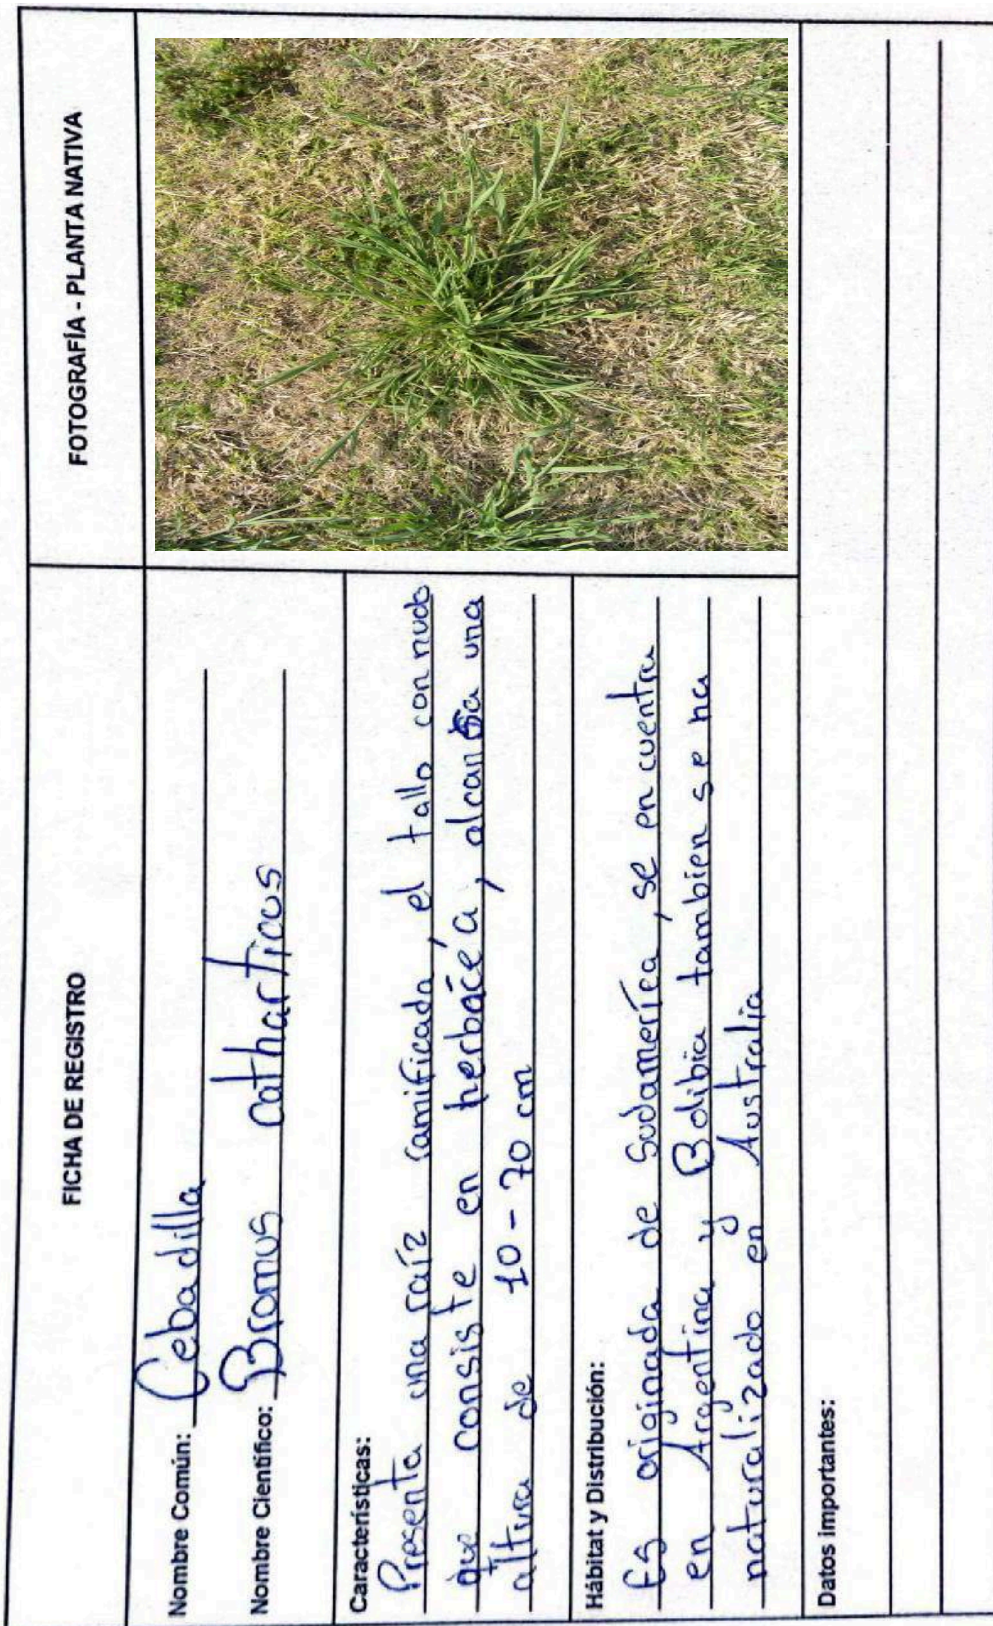 FICHA DE REGISTRO
FOTOGRAFÍA - PLANTA NATIVA
Nombre Común: Cebadilla
Nombre Científico: Bromus catharticus
Características:
Presenta una raíz ramificada, el tallo con nudo
que consiste en herbácéa, alcansa una
altura de 10 - 70 cm
Hábitat y Distribución:
Es originada de Sudameríca, se en cuentra
en Argentina y Bolibia tambien se ha
naturalizado en Australia
Datos importantes: